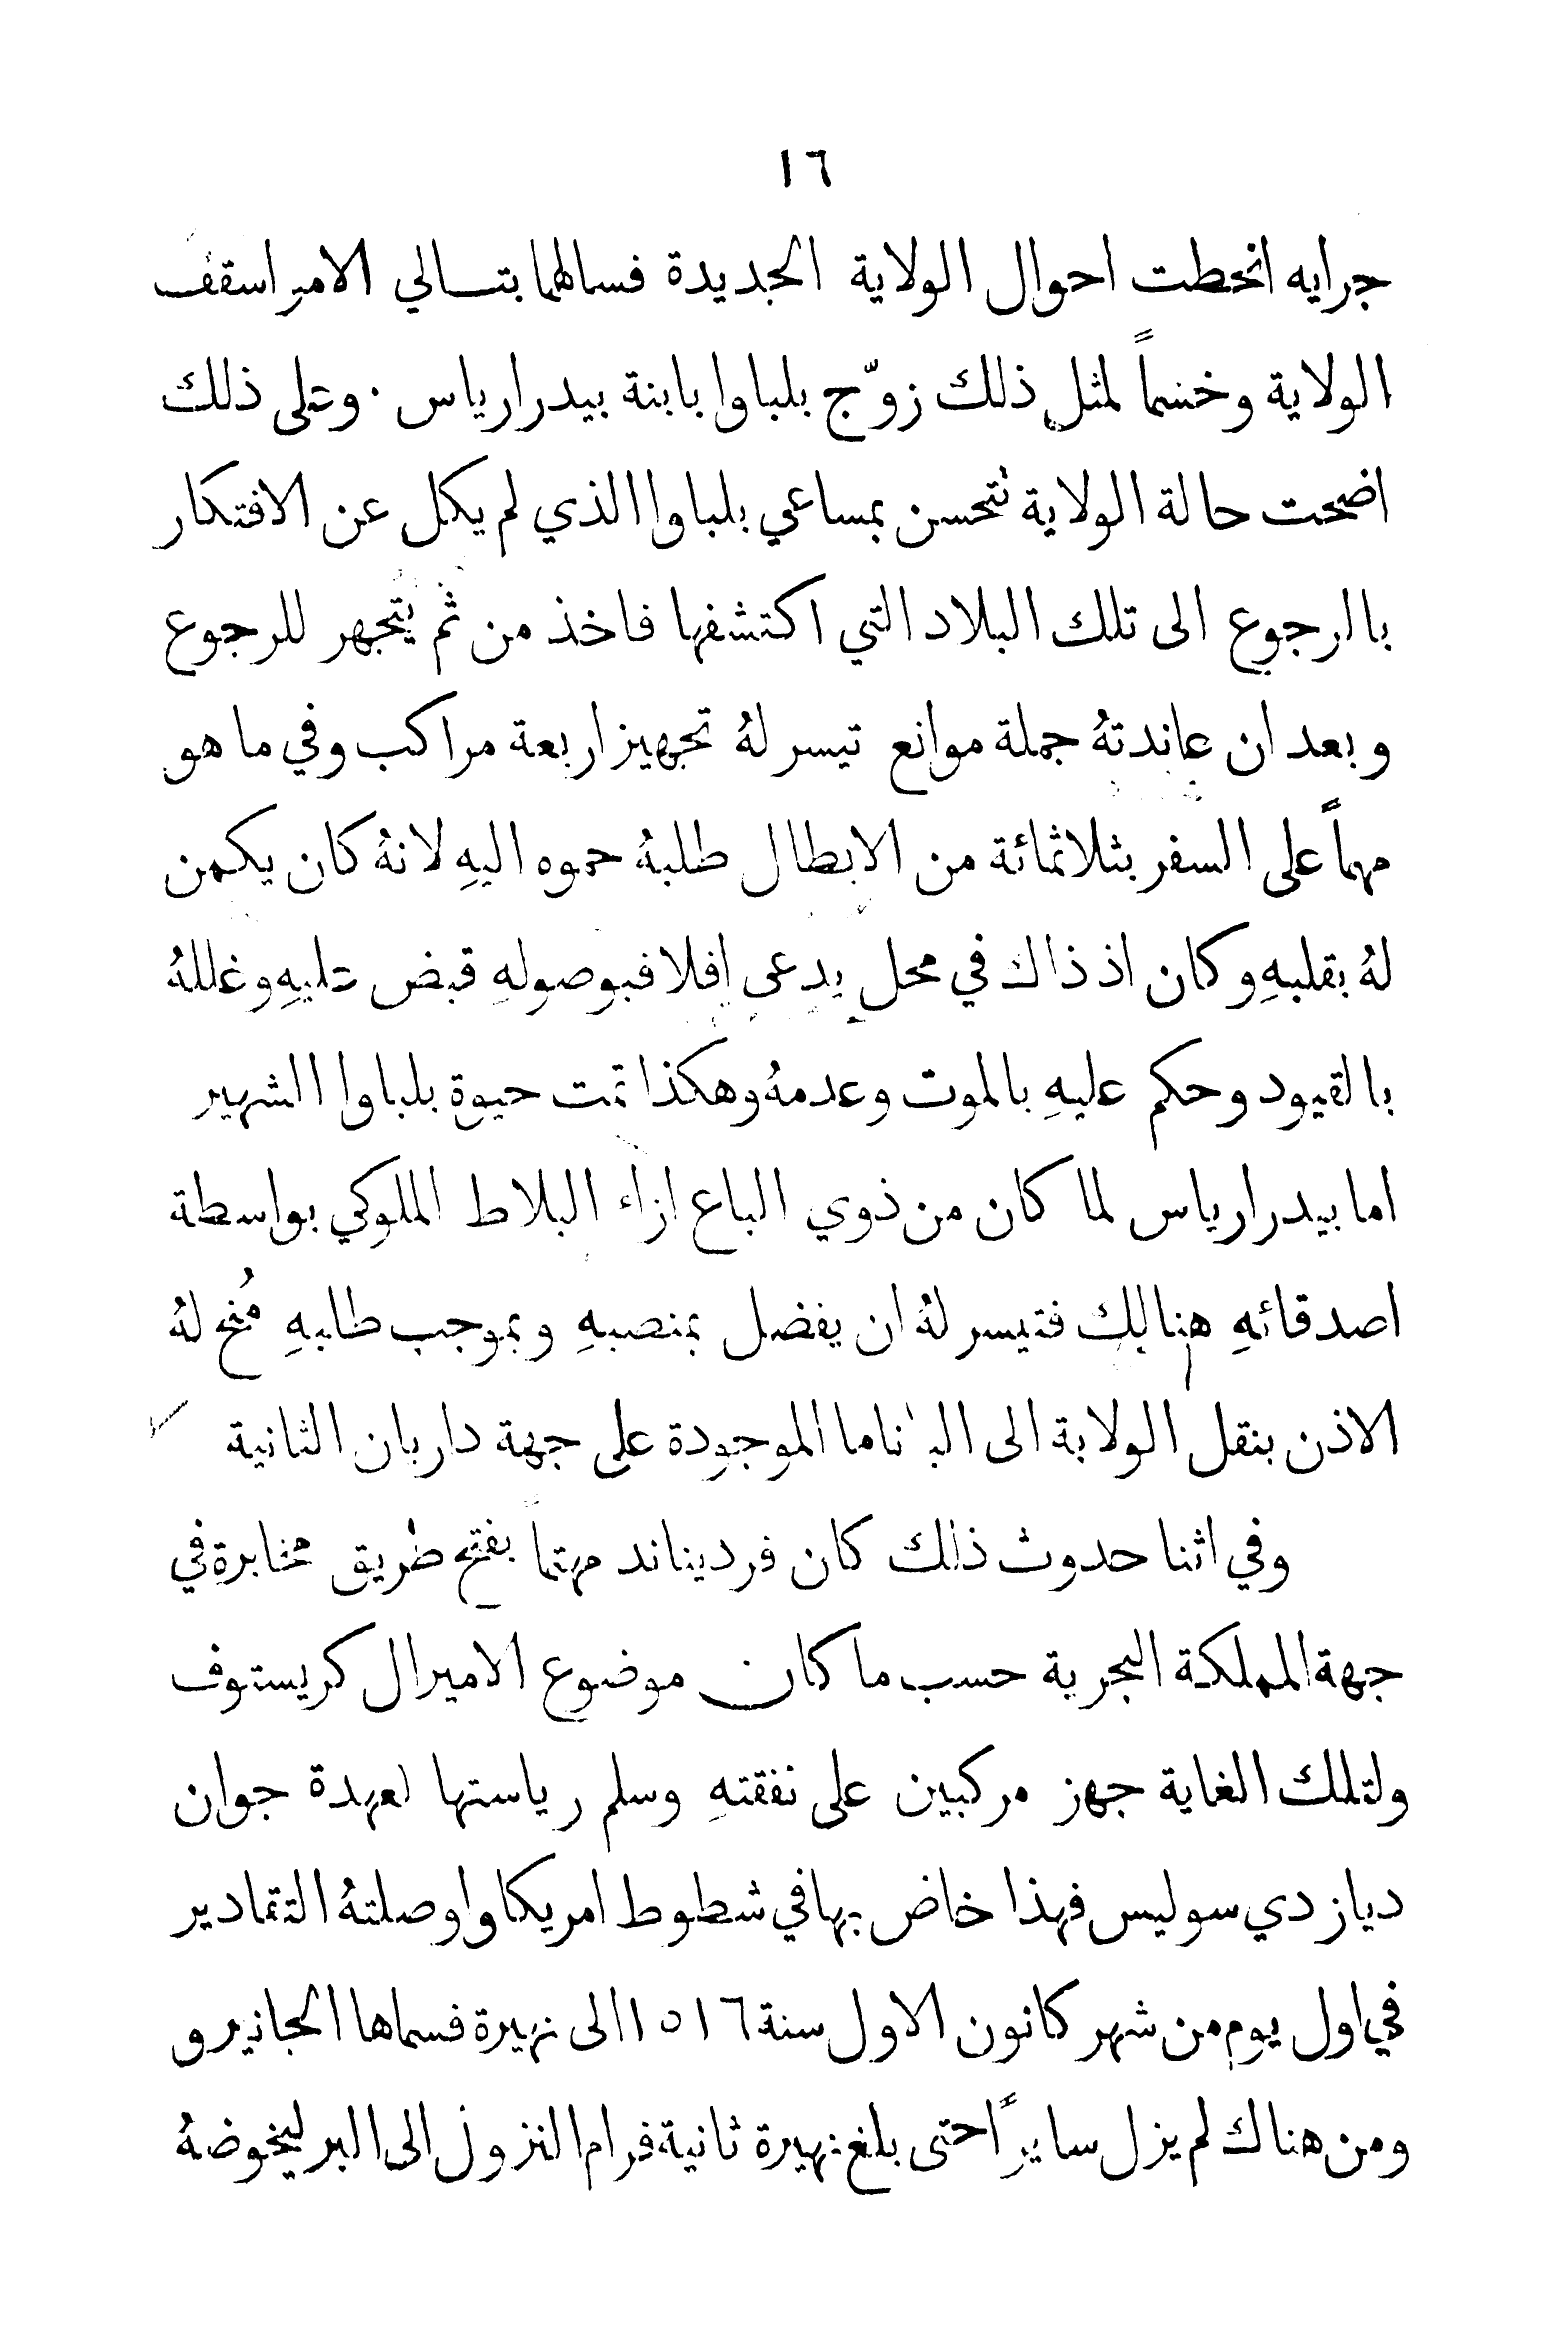 ١٦
جرايه انحطت احوال الولاية الجديدة فسالهما بتسالي الامر اسقف
الولاية وخسماً لمثل ذلك زوّج بلباوا بابنة بيدرارياس . وعلى ذلك
اضحت حالة الولاية تتحسن بمساعي بلباوا الذي لم يكل عن الافتكار
بالرجوع الى تلك البلاد التي اكتشفها فاخذ من ثم يتجهر للرجوع
وبعد ان عاندتهُ جملة موانع تيسر لهُ تجهيز اربعة مراكب وفي ما هو
مهماً على السفر بثلاثمائة من الابطال طلبهُ حموه اليهِ لانهُ كان يكمن
لهُ بقلبهِ وكان اذ ذاك في محل يدعى افلا فبوصولهِ قبض عليهِ وغللهُ
بالقيود وحكم عليهِ بالموت وعدمهُ وهكذا تمت حيوة بلباوا الشهير
اما بيدرارياس لما كان من ذوي الباع ازاء البلاط الملوكي بواسطة
اصدقائهِ هنالك فتيسر لهُ ان يفضل بمنصبهِ وبموجب طلبهِ مُنح لهُ
الاذن بنقل الولاية الى الباناما الموجودة على جهة داريان الثانية
وفي اثنا حدوث ذلك كان فرديناند مهتماً بفتح طريق مخابرة في
جهة المملكة البحرية حسب ما كان موضوع الاميرال كريستوف
ولتلك الغاية جهز مركبين على نفقتهِ وسلم رياستها لعهدة جوان
دياز دي سوليس فهذا خاض بها في شطوط امريكا واوصلتهُ التقادير
في اول يوم من شهر كانون الاول سنة ١٥١٦ الى نهيرة فسماها الجانيرو
ومن هناك لم يزل سايراً حتى بلغ نهيرة ثانية فرام النزول الى البر ليخوضهُ